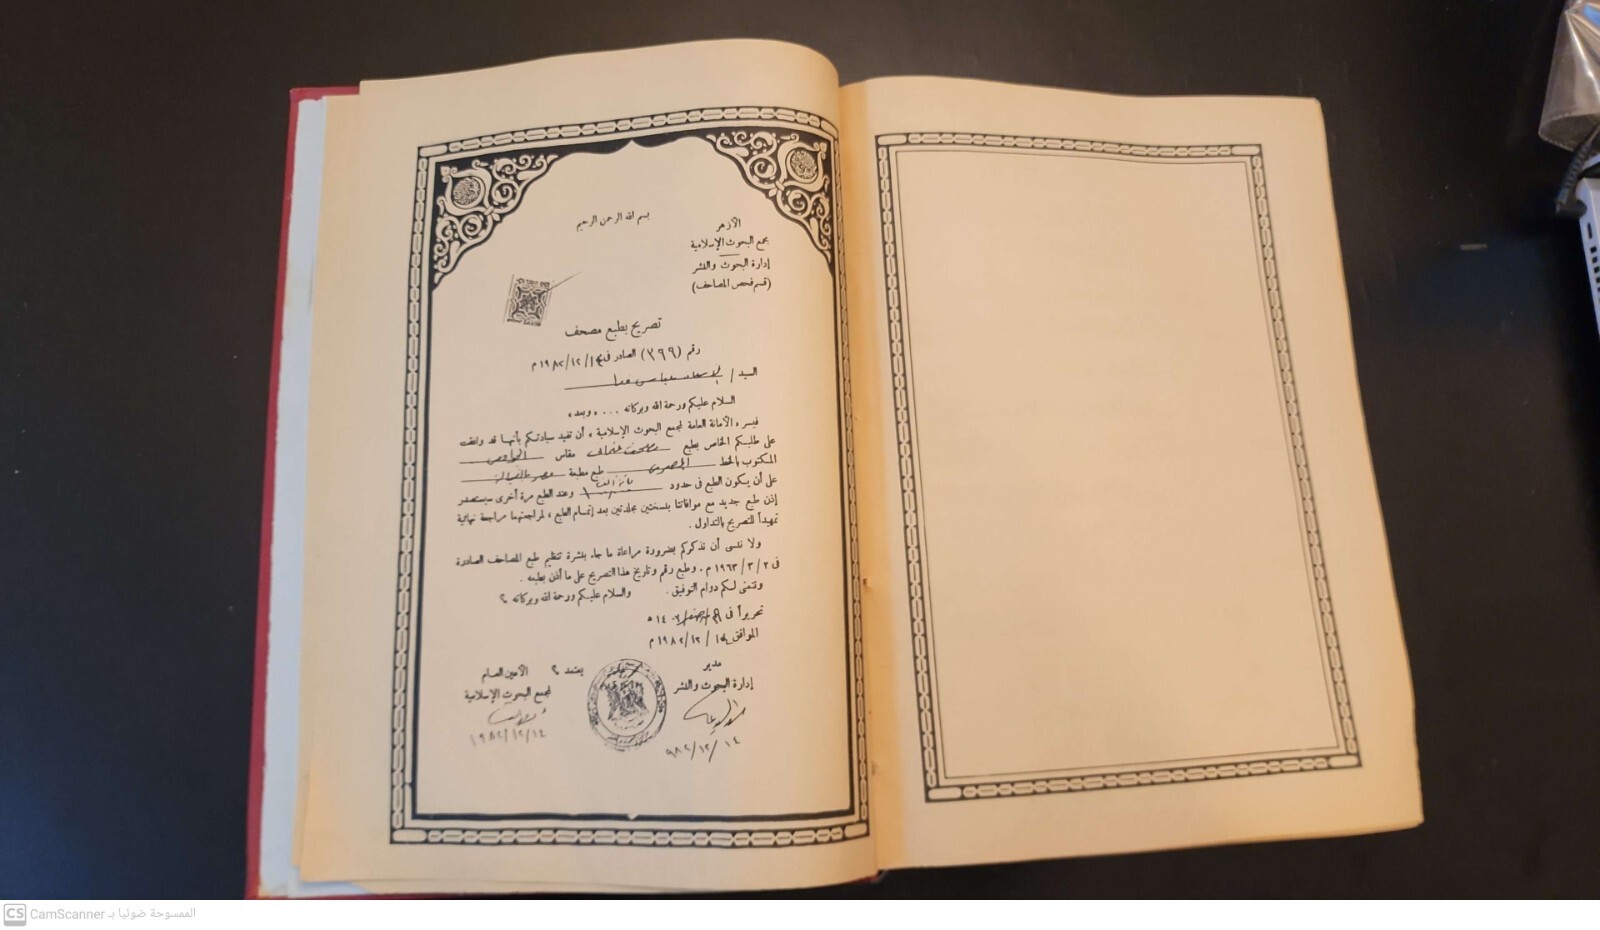 بسم الله الرحمن الرحيم
الأزهر
مجمع البحوث الإسلامية
إدارة البحوث والنشر
(قسم فحص المصاحف)
تصريح بطبع مصحف
رقم (٣٩٩) الصادر فى ١٤/١٢/١٩٨٢ م
السيد /
السلام عليكم ورحمة الله وبركاته ... ، وبعد ،
فيسر الأمانة العامة لمجمع البحوث الإسلامية ، أن تفيد سيادتكم بأنها قد وافقت
على طلبكم الخاص بطبع مصحف عثمانى مقاس الجوامعى
المكتوب بالخط طبع مطبعة مصر بالفجالة
على أن يكون الطبع فى حدود وعند الطبع مرة أخرى سيستصدر
إذن طبع جديد مع موافاتنا بنسختين مجلدتين بعد إتمام الطبع ، لمراجعتهما مراجعة نهائية
تمهيداً للتصريح بالتداول .
ولا ننسى أن نذكركم بضرورة مراعاة ما جاء بنشرة تنظيم طبع المصاحف الصادرة
فى ٢/٣/١٩٦٣ م . وطبع رقم وتاريخ هذا التصريح على ما أذن بطبعه .
ونتمنى لكم دوام التوفيق . والسلام عليكم ورحمة الله وبركاته ؟
تحريراً فى ١٤٠٣ ه
الموافق ١٤/١٢/١٩٨٢ م
مدير
إدارة البحوث والنشر
يعتمد ؟ الأمين العام
لمجمع البحوث الإسلامية
١٤/١٢/٩٨٢
١٤/١٢/١٩٨٢
CS CamScanner الممسوحة ضوئيا بـ